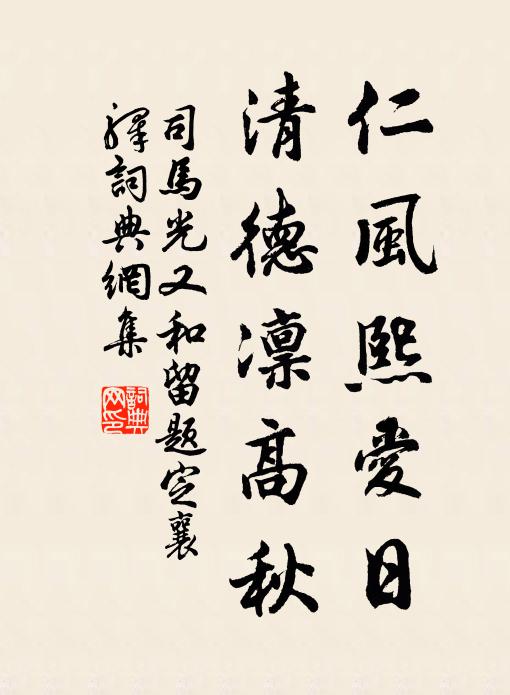 仁風熙愛日
清德凛高秋
司馬光又和留題定襄
釋詞典網集
詞典
网印